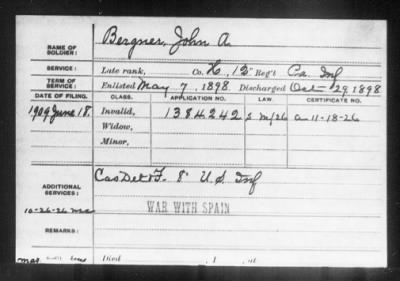 NAME OF SOLDIER: Bergner, John A.
SERVICE: Late rank, Co. K, 12" Reg't Pa. Inf
TERM OF SERVICE: Enlisted May 7, 1898 Discharged Oct 29, 1898
DATE OF FILING. CLASS. APPLICATION NO. LAW. CERTIFICATE NO.
1909 June 18. Invalid, 1384242 S M/26 a-11-18-26
Widow,
Minor,
ADDITIONAL SERVICES: Cas Det & F. 8" U.S. Inf
WAR WITH SPAIN
10-26-26
REMARKS:
Died , 1 , at